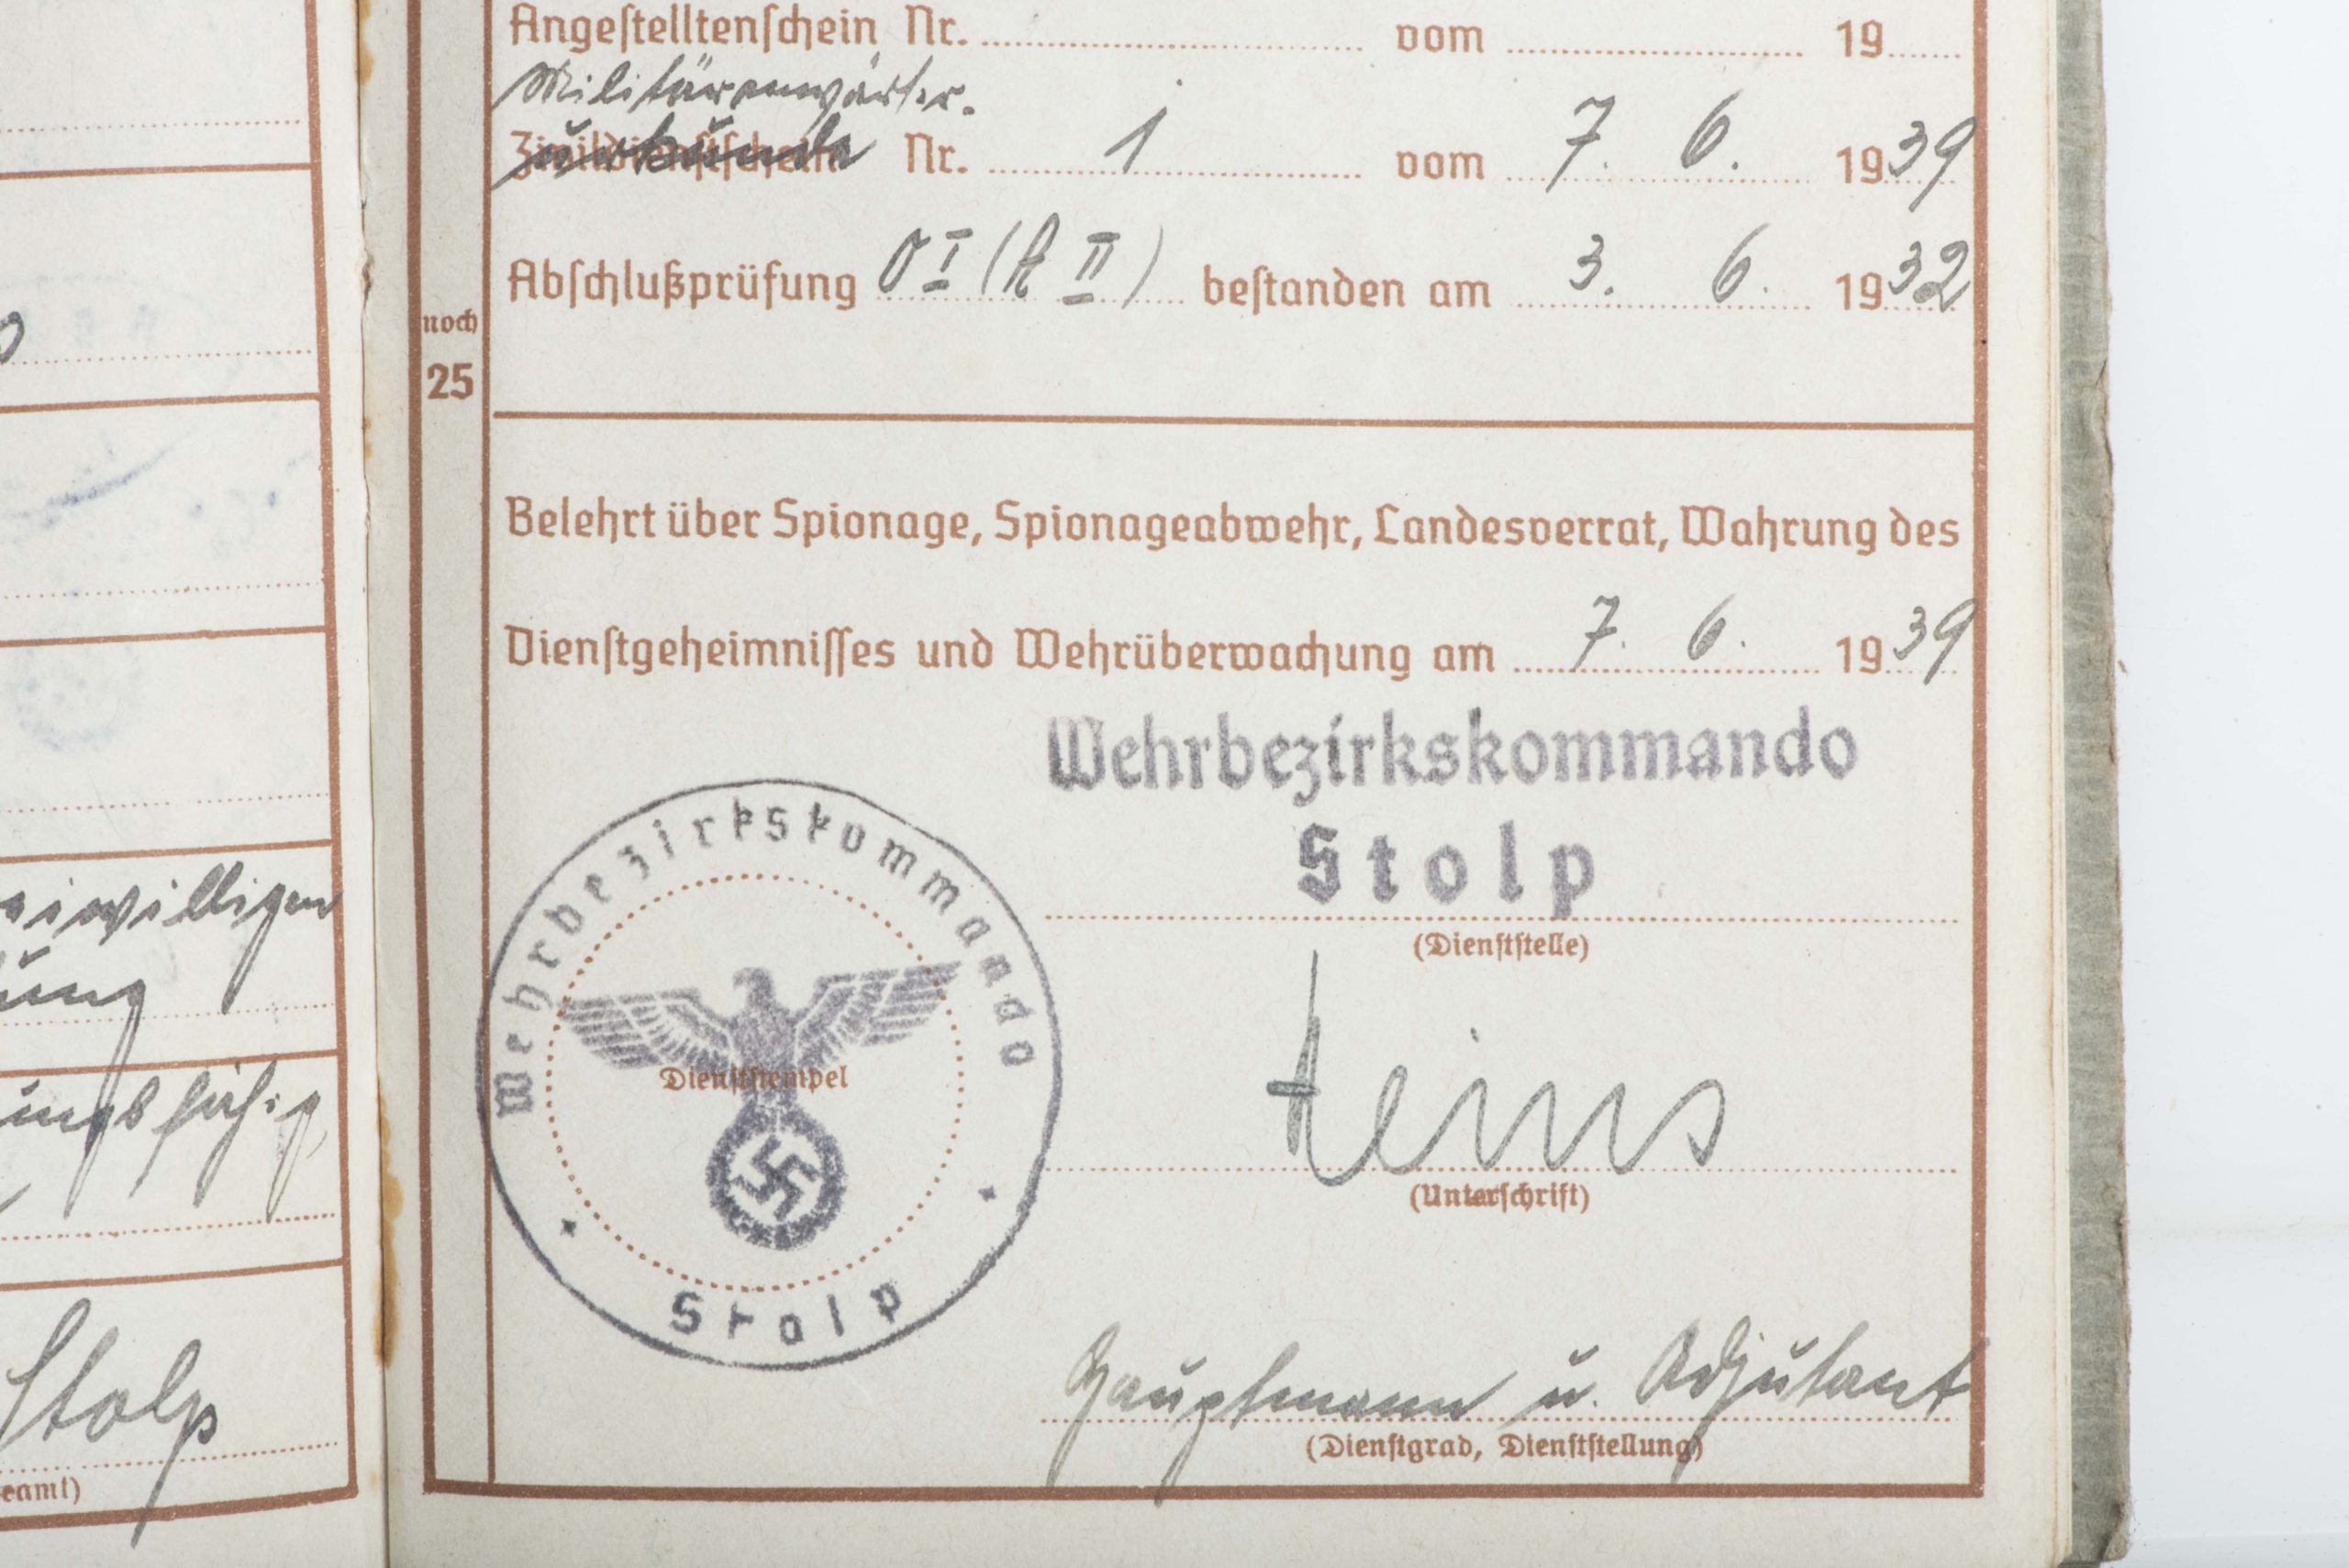 Angestelltenschein Nr. vom 19
Militäranwärter-
urkunde Nr. 1 vom 7. 6. 1939
Abschlußprüfung O I (A II) bestanden am 3. 6. 1932
noch
25
Belehrt über Spionage, Spionageabwehr, Landesverrat, Wahrung des
Dienstgeheimnisses und Wehrüberwachung am 7. 6. 1939
Wehrbezirkskommando
Stolp
(Dienststelle)
Wehrbezirkskommando
Dienststempel
Stolp
(Unterschrift)
Hauptmann u. Adjutant
(Dienstgrad, Dienststellung)
Stolp